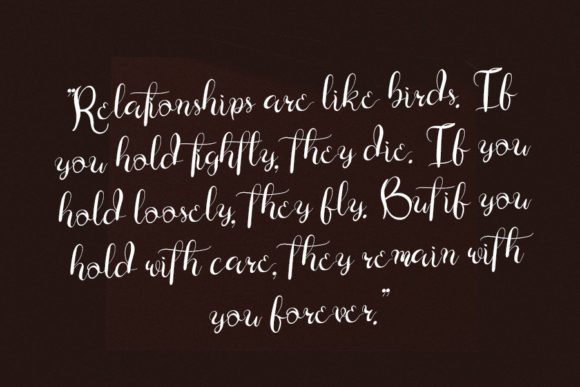 "Relationships are like birds. If
you hold tightly, they die. If you
hold loosely, they fly. But if you
hold with care, they remain with
you forever."